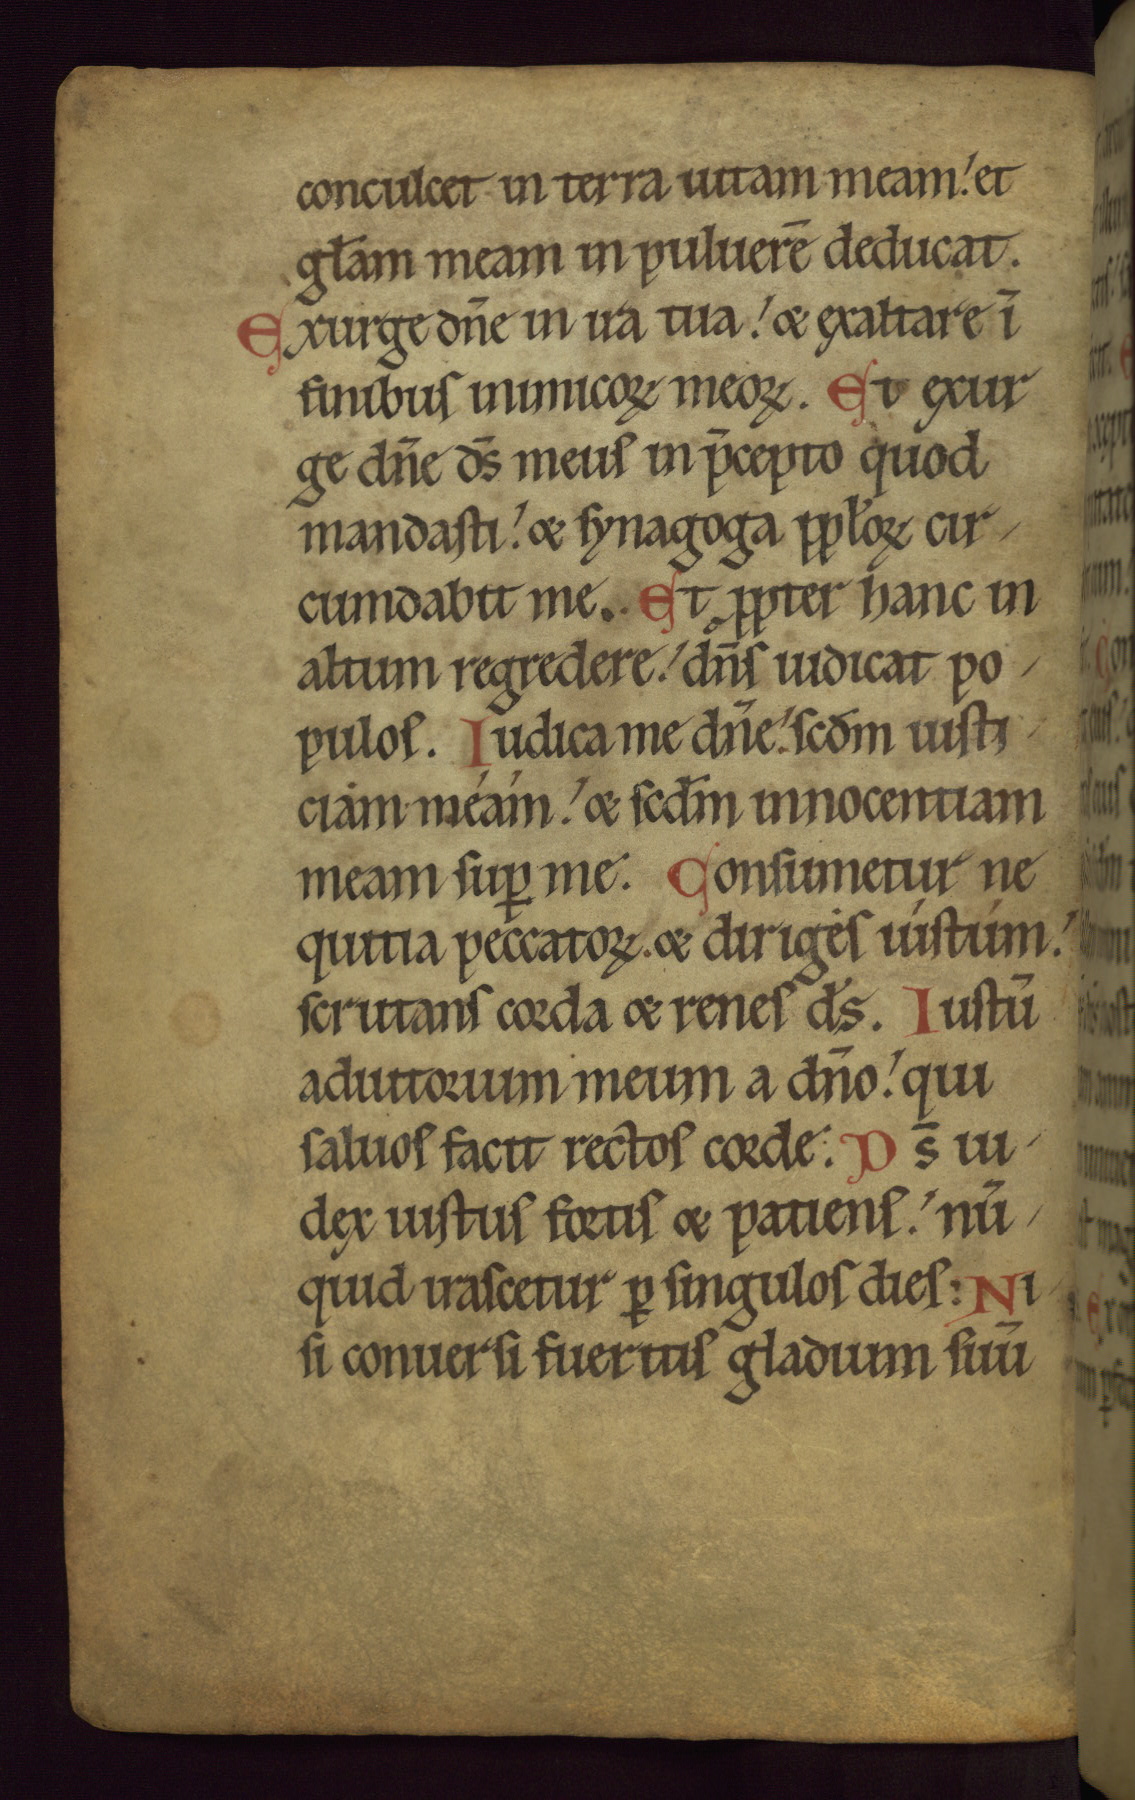 conculcet in terra uitam meam. et
gl̄am meam in puluerē deducat.
Exurge dn̄e in ira tua. & exaltare ī
finibus inimicoꝝ meoꝝ. Et exur
ge dn̄e ds̄ meus in p̄cepto quod
mandasti. & synagoga ppl̄oꝝ cir-
cumdabit me. Et ppter hanc in
altum regredere. dn̄s iudicat po-
pulos. Iudica me dn̄e. scd̄m iusti-
ciam meam. & scd̄m innocentiam
meam suꝑ me. Consumetur ne
quitia peccatoꝝ. & diriges iustum.
scrutans corda & renes ds̄. Iustū
adiutorium meum a dn̄o. qui
saluos facit rectos corde. Ds̄ iu-
dex iustus fortis & patiens. nū-
quid irascetur ꝑ singulos dies. Ni-
si conuersi fueritis gladium suū